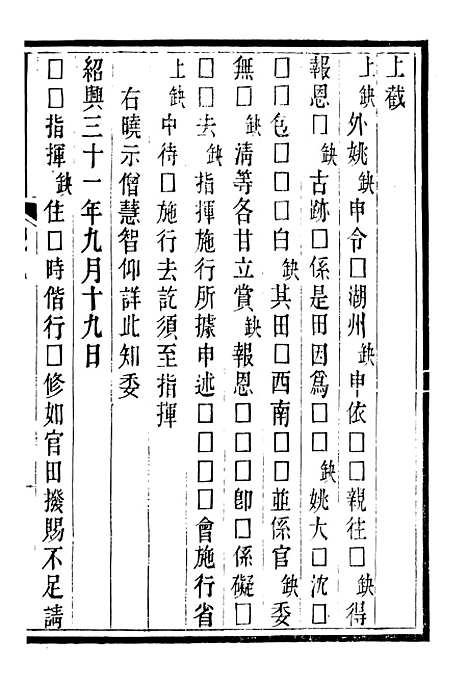 上截
上缺外姚缺申令□湖州缺申依□□親往□缺得
報恩□缺古跡□係是田因爲□□缺姚大□沈□
□□色□□□□白缺其田□西南□□並係官缺委
無□缺清等各甘立賞缺報恩□□□卽□係礙□
□□去缺指揮施行所據申述□□□□會施行省
上缺申待□施行去訖須至指揮
右曉示僧慧智仰詳此知委
紹興三十一年九月十九日
□□指揮缺住□時偕行□修如官田撥賜不足請